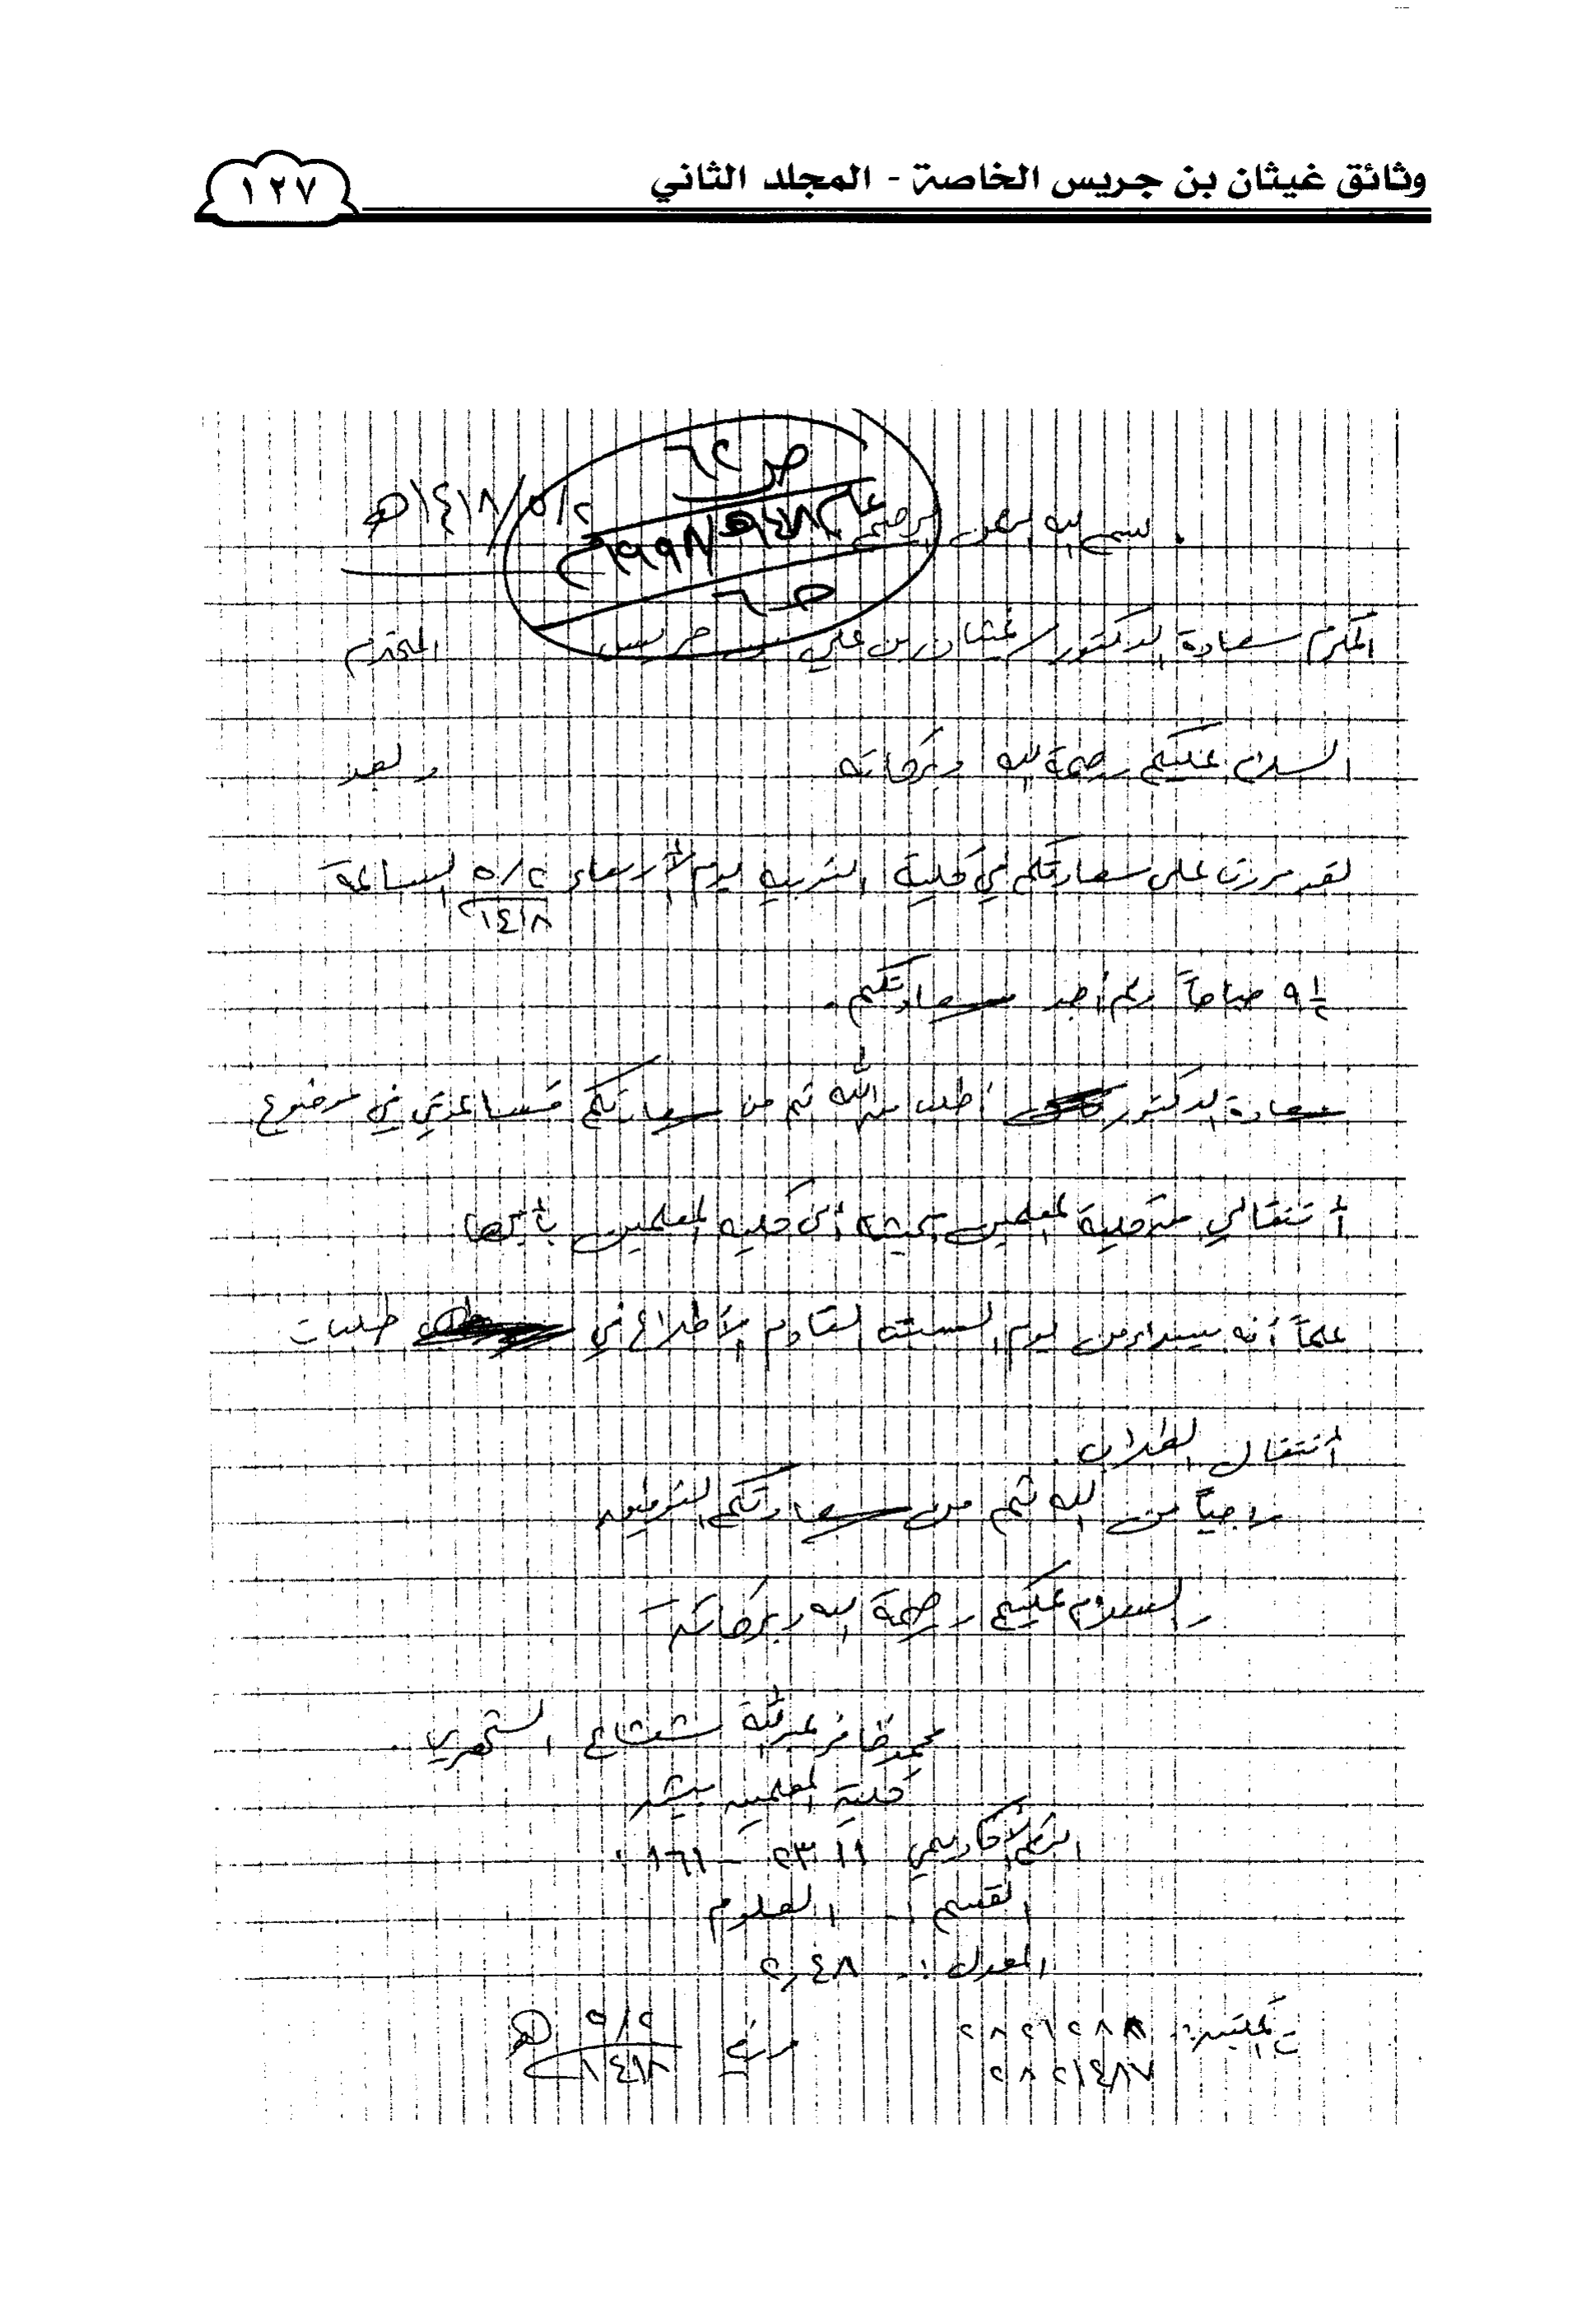 وثائق غيثان بن جريس الخاصة - المجلد الثاني
١٢٧
ص ٦٢
عام ١٤١٨هـ / ١٩٩٨م
ص ٦
٢/٥/١٤١٨هـ
بسم الله الرحمن الرحيم
المكرم سعادة الدكتور / غيثان بن علي بن جريس المحترم
السلام عليكم ورحمة الله وبركاته وبعد
لقد مررت على سعادتكم في كلية التربية يوم الأربعاء ٢/٥ الساعة
١٤١٨
٩ ١/٢ صباحاً ولم أجد سعادتكم.
سعادة الدكتور أطلب من الله ثم من سعادتكم مساعدتي في موضوع
أنتقالي من كلية المعلمين ببيشه ألى كلية المعلمين بأبها
علماً أنه سيبدأ من يوم السبت القادم الأطلاع في طلبات
أنتقال الطلاب.
راجياً من الله ثم من سعادتكم التوفيق
والسلام عليكم ورحمة الله وبركاته
محمد ظافر عبدالله الشهري.
كلية المعلمين ببيشه
الرقم الأكاديمي ١١ ٢٣ - ١٦١٠
القسم العلوم
المعدل :. ٢,٤٨
ت المكتبة:
٢٨٢١٤٨٧
٢/٥
١٤١٨ هـ